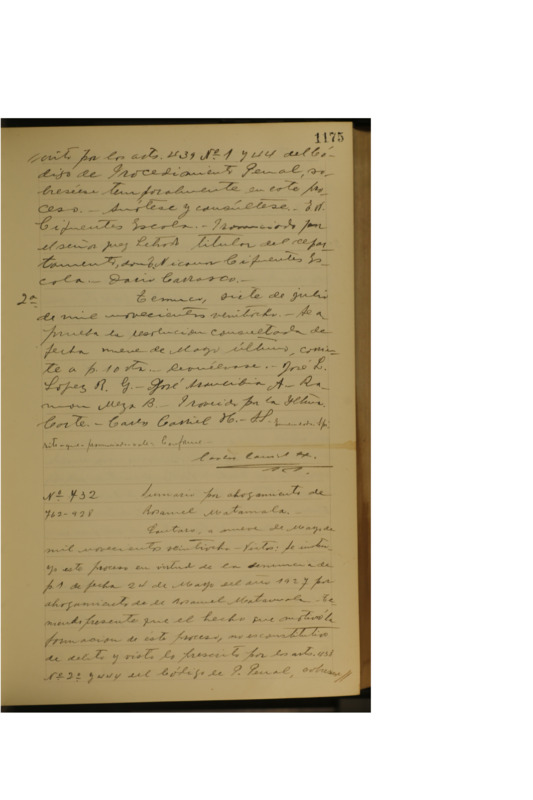 1175
visto por los arts. 439 Nº 1 y 444 del Có-
digo de Procedimiento Penal, so-
breséese temporalmente en este pro-
ceso. - Anótese y consúltese. - N.
Cifuentes Escola. - Pronunciado por
el señor juez Letrado titular del depar-
tamento, don Nicanor Cifuentes Es-
cola - Darío Carrasco. -
2ª Temuco, siete de julio
de mil novecientos veintiocho. - Se a
prueba la resolución consultada de
fecha nueve de Mayo último, corrien-
te a f. 10 vta - Devuélvase. - José L.
López R. G. - José A. - Ra-
mon Meza B. - Proveído por la Iltma.
Corte. - Carlos Cassiel H. - S.
Conforme. -
Carlos Cassiel H.
Nº 432 Sumario por ahogamiento de
762-928 Rosamel Matamala. -
Lautaro, a nueve de Mayo de
mil novecientos veintiocho - Vistos: Se instru-
yó este proceso en virtud de la denuncia de
f. 1 de fecha 24 de Mayo del año 1927 por
ahogamiento de Rosamel Matamala - Te
niendo presente que el hecho que motivó la
formación de este proceso, no es constitutivo
de delito y visto lo prescrito por los arts. 438
Nº 2º y 444 del Código de P. Penal,